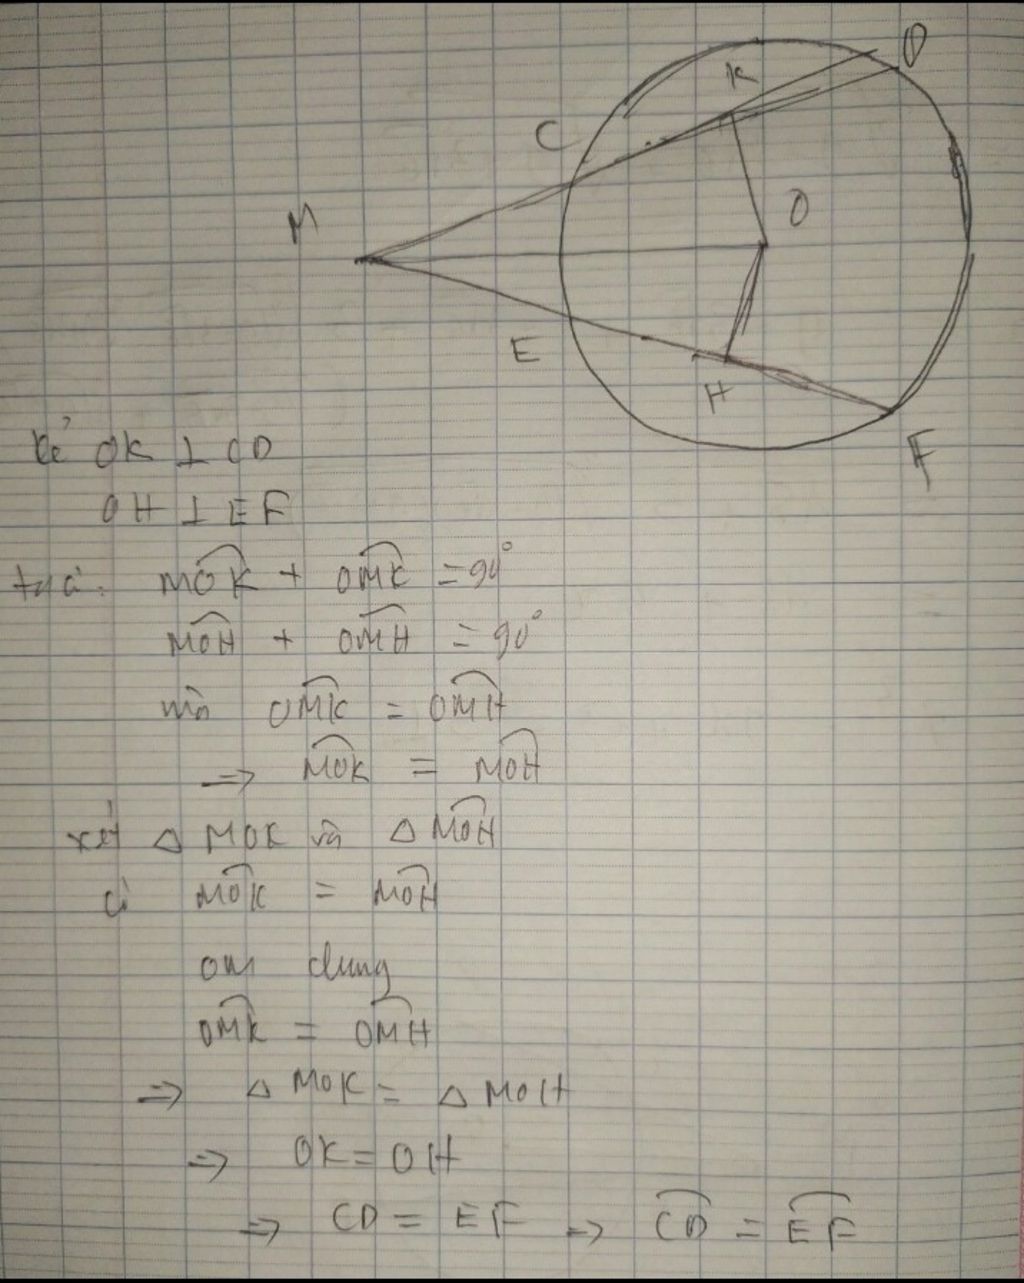 K
D
C
M
O
E
H
F
kẻ OK ⊥ CD
OH ⊥ EF
ta có: \widehat{MOK} + \widehat{OMK} = 90°
\widehat{MOH} + \widehat{OMH} = 90°
mà \widehat{OMK} = \widehat{OMH}
=> \widehat{MOK} = \widehat{MOH}
xét △ MOK và △ \widehat{MOH}
có \widehat{MOK} = \widehat{MOH}
OM chung
\widehat{OMK} = \widehat{OMH}
=> △ MOK = △ MOH
=> OK = OH
=> CD = EF => \overset{\frown}{CD} = \overset{\frown}{EF}